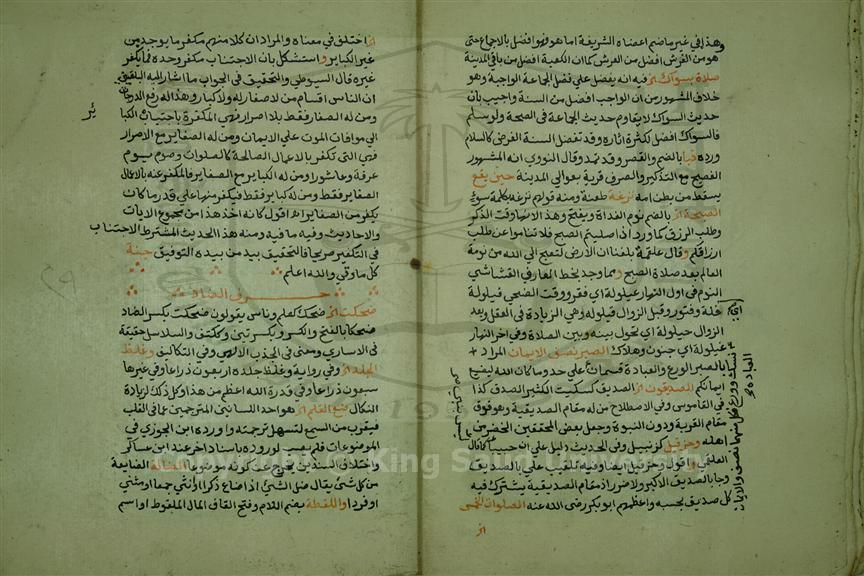 وهذا في غير ما ضم اعضاه الشريفة اما هو فهو افضل بالاجماع حتى
هو من العرش افضل من العرش كما ان الكعبة افضل من باقي المدينة
صلاة بسواك الخ فيه انه يفضل على فضل الجماعة الواجبة وهو
خلاف المشهور من ان الواجب افضل من السنة واجيب بان
حديث السواك لا يقاوم حديث الجماعة في الصحة ولو سلم
فالسواك افضل لكثرة اثاره وقد تفضل السنة الفرض كالسلام
ورده قبا بالضم والقصر وقد تمد وقال النووي انه المشهور
الفصيح مع التذكير والصرف قرية بعوالي المدينة حين يقع
يسقط من بطن امه نزغة طعنة ومنه قولهم نزغه بكلمة سوء
الصبحة الخ بالضم نوم الغداة ويفتح وهذا لانها وقت الذكر
وطلب الرزق كما ورد اذا صليتم الصبح فلا تناموا عن طلب
ارزاقكم وقال علقمة بلغنا ان الارض لتعج الى الله من نومة
العالم بعد صلاة الصبح ومما وجد بخط العارف القشاشي
النوم في اول النهار عيلولة اي فقر ووقت الضحى فيلولة اي
خلة وفتور وقبل الزوال قيلولة وهي الزيادة في العقل وبعد
الزوال حيلولة اي تحول بينه وبين الصلاة وفي اخر النهار
غيلولة اي جنون وهلاك الصبر نصف الايمان المراد
بالصبر الورع والعبادة قسمان على حد وما كان الله ليضيع
ايمانكم الصديقون الخ الصديق كسكيت الكثير الصدق كذا
في القاموس وفي الاصطلاح من له مقام الصديقية وهو فوق
مقام القربة ودون النبوة وجعل بعض المحققين الخضر من
اهله وحزقيل كزنبيل وفي الحديث دليل على ان حبيبا كما قال
العلقمي واقول وحزقيل ايضا وفيه تلقيب علي بالصديق
وجا بالصديق الاكبر ولا ضرر اذ مقام الصديقية يشترك فيه
كل صديق بحسبه واعظمهم ابو بكر رضى الله عنه الصلوات الخمس
الخ
نسك وورع فكل منهما نصف والايمان
العبادة
الخ اختلف في معناه والمراد ان كلا منهم مكفر ما يوجد من
غير الكباير واستشكل بان الاجتناب مكفر وحده فما يكفر
غيره قال السيوطي والتحقيق في الجواب ما اشار اليه البلقيني
ان الناس اقسام من لا صغار له ولا كبار وهذا له رفع الدرجات
ومن له الصغار فقط بلا اصرار فهي المكفرة باجتناب الكبا
ئر
الى موافات الموت على الايمان ومن له الصغاير مع الاصرار
فهي التي تكفر بالاعمال الصالحة كالصلوات وصوم يوم
عرفة وعاشورا ومن له الكباير مع الصغاير فالمكفر عنه بالاعمال
الصغاير فقط ومن له كباير فقط فيكفر منها على قدر ما كان
يكفر من الصغاير اه اقول كانه اخذ هذا من مجموع الايات
والاحاديث وفيه ما فيه ومنه هذا الحديث المشترط الاجتناب
في التكفير صريحا فالتحقيق بيد من بيده التوفيق جنة
كل ما وقي والله اعلم
حرف الضاد
ضحكت الخ ضحك كعلم وناس يقولون ضحكت بكسر الضاد
ضحكا بالفتح والكسر وبكسرتين وككتف والسلاسل حقيقة
في الاسارى ومعنى في الجذب الالهي وفي التكاليف وغلظ
الجلد الخ وفي رواية وغلظ جلده اربعون ذراعا وفي غيرها
سبعون ذراعا وفي قدرة الله اعظم من هذا وكل ذلك لزيادة
النكال ضع القلم الخ هو احد اللسانين المترجمين عما في القلب
فيقرب من السمع لتسهل ترجمته واورده ابن الجوزي في
الموضوعات فلم يصب لوروده باسناد اخر عند ابن عساكر
واختلاف السندين يخرج عن كونه موضوعا الضالة الضايعة
من كل شئ يقال ضل الشئ اذا ضاع ذكرا او انثى جمعا او مثنى
او فردا واللقطة بضم اللام وفتح القاف المال الملقوط او اسم